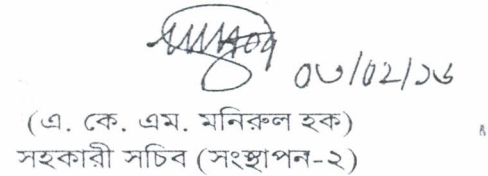 ০৩/০২/১৬
(এ. কে. এম. মনিরুল হক)
সহকারী সচিব (সংস্থাপন-২)